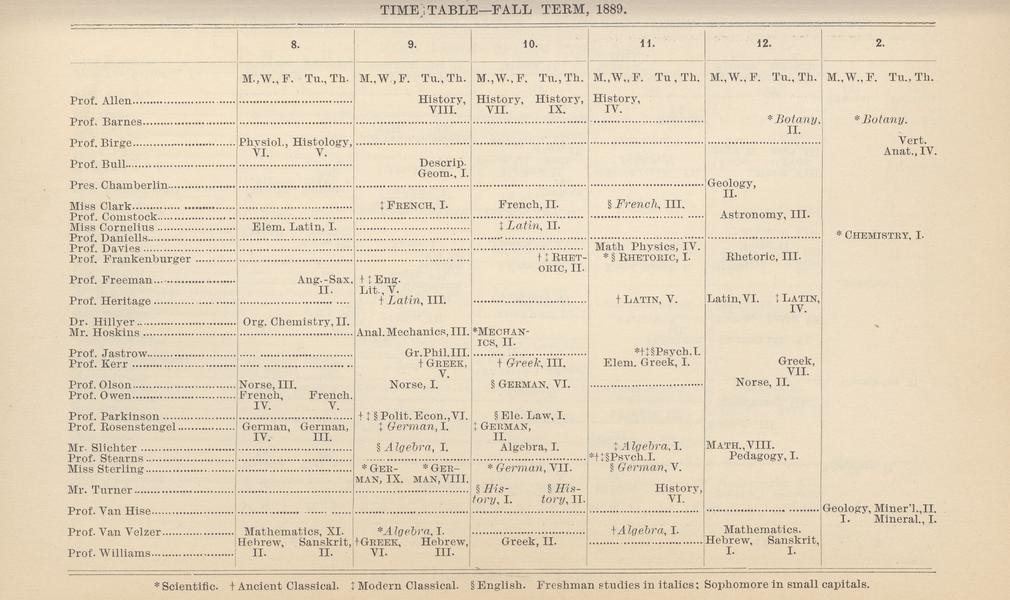 TIME TABLE—FALL TERM, 1889.
8. 9. 10. 11. 12. 2.
M.,W., F. Tu., Th. M.,W., F. Tu., Th. M.,W., F. Tu., Th. M.,W., F. Tu , Th. M.,W., F. Tu., Th. M.,W., F. Tu., Th.
Prof. Allen History, VIII. History, VII. History, IX. History, IV.
Prof. Barnes * Botany, II. * Botany.
Prof. Birge Physiol., VI. Histology, V. Vert. Anat., IV.
Prof. Bull Descrip. Geom., I.
Pres. Chamberlin Geology, II.
Miss Clark ‡ FRENCH, I. French, II. § French, III.
Prof. Comstock Astronomy, III.
Miss Cornelius Elem. Latin, I. ‡ Latin, II.
Prof. Daniells * CHEMISTRY, I.
Prof. Davies Math Physics, IV.
Prof. Frankenburger † ‡ RHET-ORIC, II. * § RHETORIC, I. Rhetoric, III.
Prof. Freeman Ang.-Sax. II. † ‡ Eng. Lit., V.
Prof. Heritage † Latin, III. † LATIN, V. Latin, VI. ‡ LATIN, IV.
Dr. Hillyer Org. Chemistry, II.
Mr. Hoskins Anal. Mechanics, III. *MECHAN-ICS, II.
Prof. Jastrow Gr. Phil. III. *†‡§Psych. I.
Prof. Kerr † GREEK, V. † Greek, III. Elem. Greek, I. Greek, VII.
Prof. Olson Norse, III. Norse, I. § GERMAN, VI. Norse, II.
Prof. Owen French, IV. French. V.
Prof. Parkinson † ‡ § Polit. Econ., VI. § Ele. Law, I.
Prof. Rosenstengel German, IV. German, III. ‡ German, I. ‡ GERMAN, II.
Mr. Slichter § Algebra, I. Algebra, I. ‡ Algebra, I. MATH., VIII.
Prof. Stearns *†‡§Psych. I. Pedagogy, I.
Miss Sterling * GER-MAN, IX. * GER-MAN, VIII. * German, VII. § German, V.
Mr. Turner § His-tory, I. § His-tory, II. History, VI.
Prof. Van Hise Geology, I. Miner'l., II. Mineral., I.
Prof. Van Velzer Mathematics, XI. *Algebra, I. † Algebra, I. Mathematics.
Prof. Williams Hebrew, II. Sanskrit, II. †GREEK, VI. Hebrew, III. Greek, II. Hebrew, I. Sanskrit, I.
*Scientific. † Ancient Classical. ‡ Modern Classical. § English. Freshman studies in italics; Sophomore in small capitals.